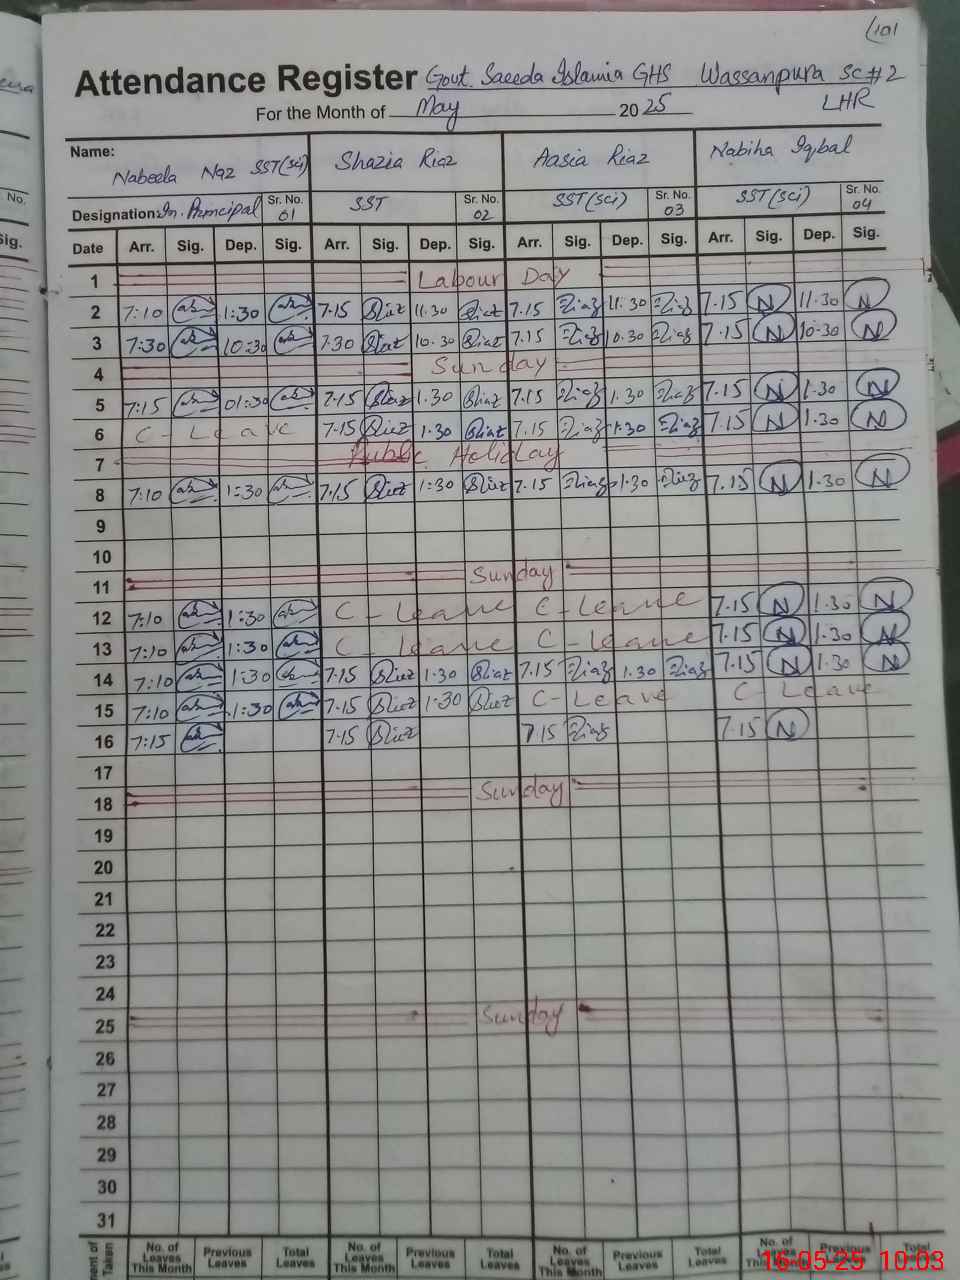 (101
Attendance Register Govt. Saeeda Islamia GHS Wassanpura SC#2
For the Month of May 2025 LHR
Name: Nabeela Naz SST(sci) Shazia Riaz Aasia Riaz Nabiha Iqbal
Designation: In. Principal Sr. No. 01 SST Sr. No. 02 SST(sci) Sr. No. 03 SST(sci) Sr. No. 04
Date Arr. Sig. Dep. Sig. Arr. Sig. Dep. Sig. Arr. Sig. Dep. Sig. Arr. Sig. Dep. Sig.
1 Labour Day
2 7:10 1:30 7.15 11.30 7.15 11.30 7.15 N 11.30 N
3 7:30 10:30 7.30 10.30 7.15 10.30 7.15 N 10-30 N
4 Sunday
5 7:15 01:30 7.15 1.30 7.15 1.30 7.15 N 1.30 N
6 C-Leave 7.15 1.30 7.15 1.30 7.15 N 1.30 N
7 Public Holiday
8 7:10 1:30 7.15 1:30 7.15 1.30 7.15 N 1.30 N
9
10
11 Sunday
12 7:10 1:30 C-Leave C-Leave 7.15 N 1.30 N
13 7:10 1:30 C-Leave C-Leave 7.15 N 1.30 N
14 7:10 1:30 7.15 1.30 7.15 1.30 7.15 N 1.30 N
15 7:10 1:30 7.15 1:30 C-Leave C Leave
16 7:15 7.15 7.15 7.15 N
17
18 Sunday
19
20
21
22
23
24
25 Sunday
26
27
28
29
30
31
No. of Leaves This Month Previous Leaves Total Leaves No. of Leaves This Month Previous Leaves Total Leaves No. of Leaves This Month Previous Leaves Total Leaves No. of Leaves Previous Leaves Total
16-05-25 10:03